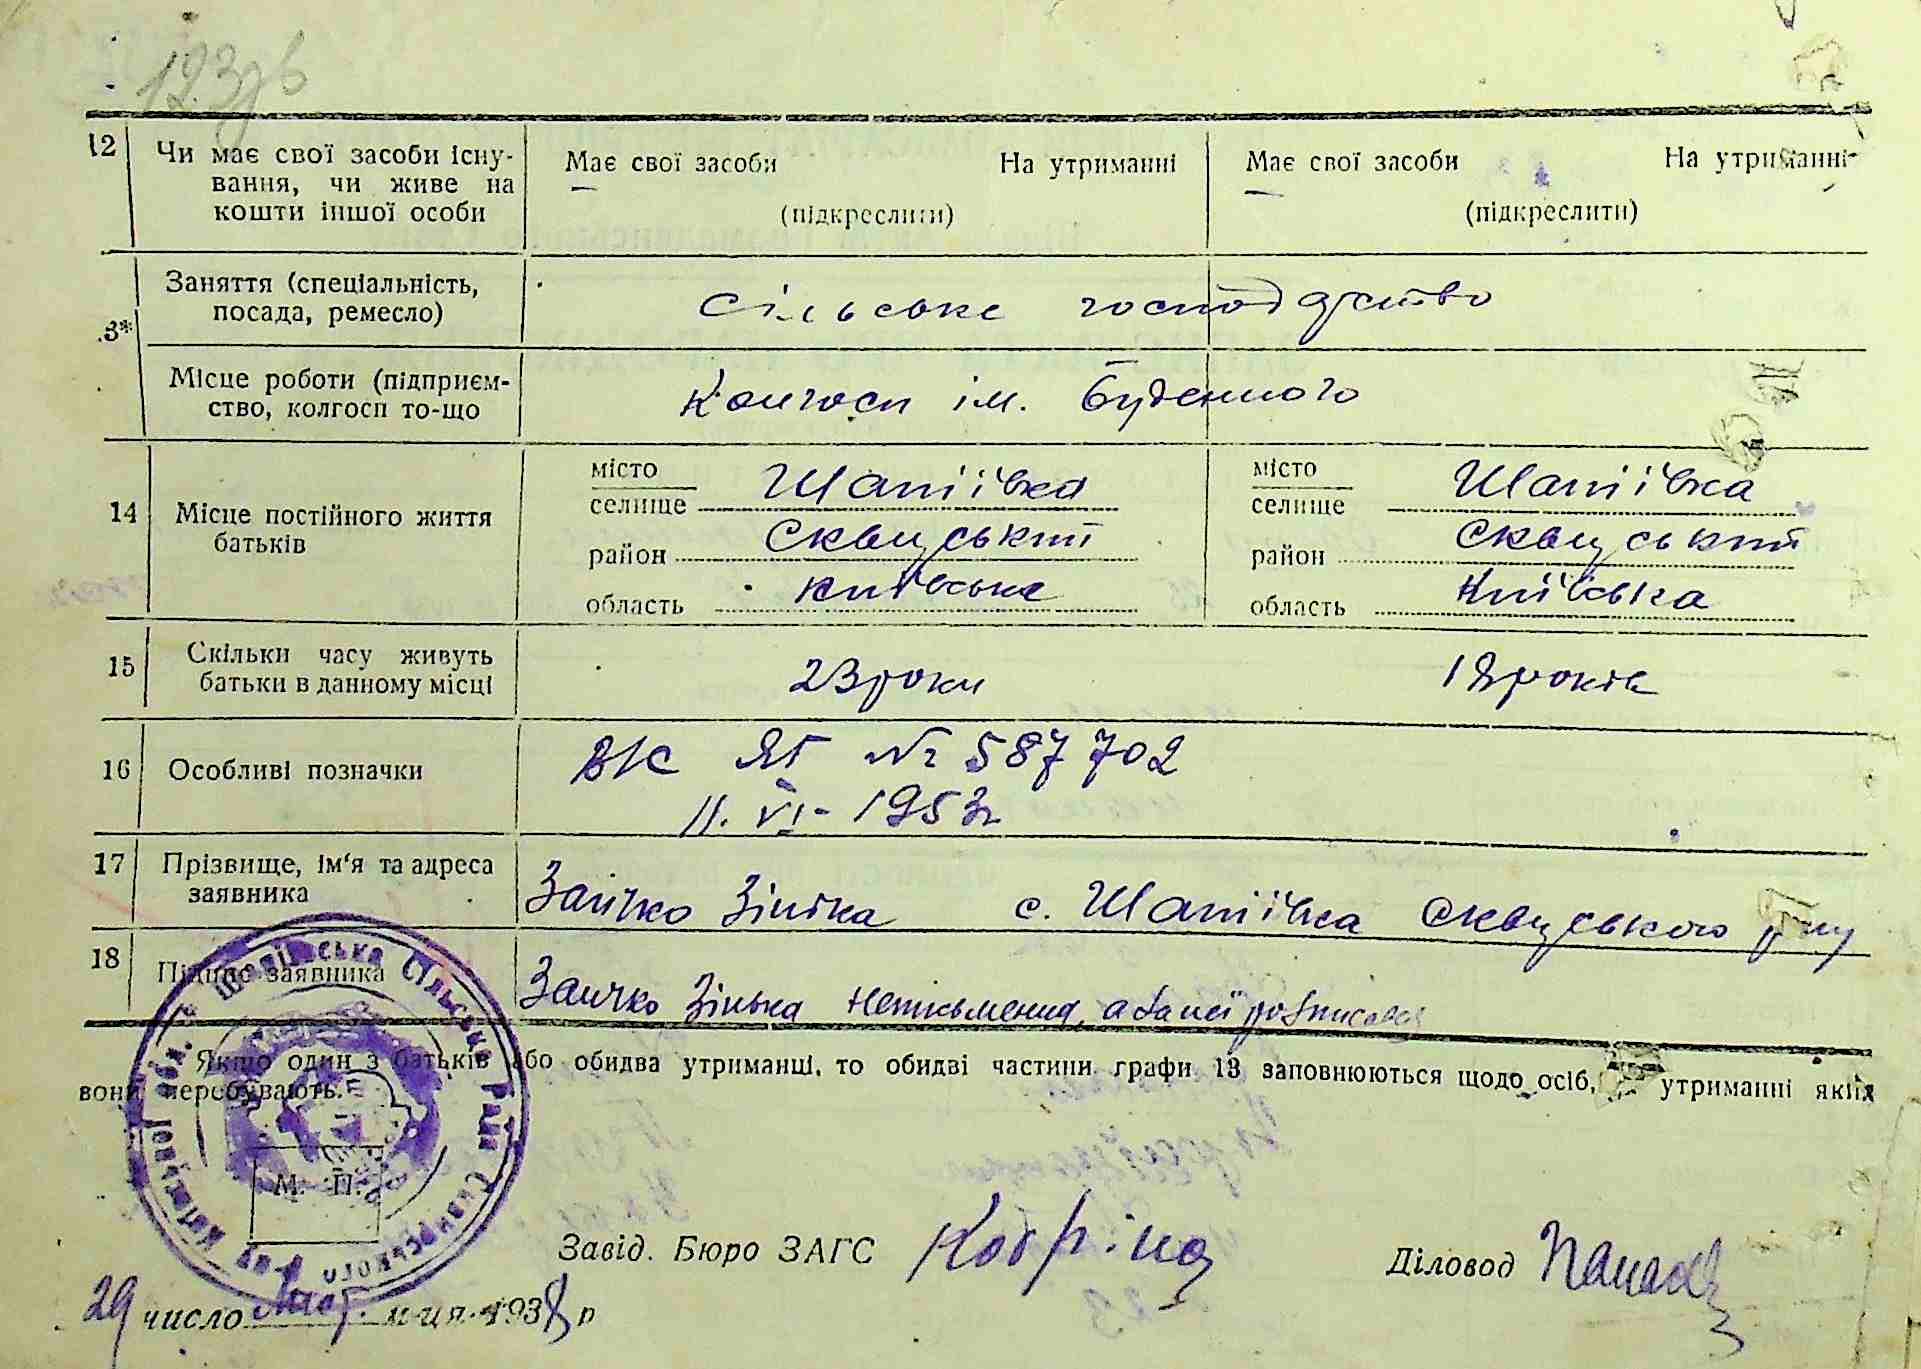 12
Чи має свої засоби існу-
вання, чи живе на
кошти іншої особи
Має свої засоби На утриманні
(підкреслити)
Має свої засоби На утриманні
(підкреслити)
Заняття (спеціальність,
посада, ремесло)
сільське господарство
3*
Місце роботи (підприєм-
ство, колгосп то-що
Колгосп ім. Буденного
14
Місце постійного життя
батьків
місто
селище Шапіївка
район Сквирський
область Київська
місто
селище Шапіївка
район Сквирський
область Київська
15
Скільки часу живуть
батьки в данному місці
23 роки 18 років
16
Особливі позначки
№ 587702
11. VI - 1953 г
17
Прізвище, ім'я та адреса
заявника
Заичко Зінька с. Шапіївка Сквирського р-ну
18
Підпис заявника
Заичко Зінька неписьменна, а за неї розписався
Якщо один з батьків або обидва утриманці, то обидві частини графи 13 заповнюються щодо осіб, утриманні яких
вони перебувають.
М. П.
Завід. Бюро ЗАГС
Діловод
29 число м-ця 1938 р